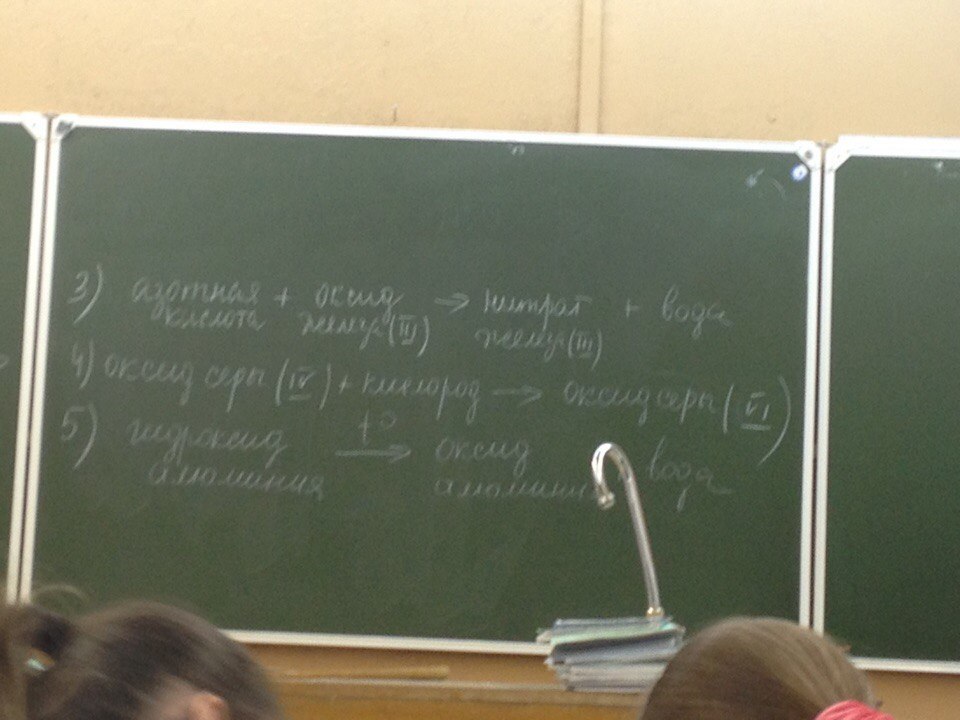 3) азотная + оксид → нитрат + вода
кислота железа (III) железа (III)
4) оксид серы (IV) + кислород → оксид серы (VI)
5) гидроксид t° → оксид вода
алюминия алюминия